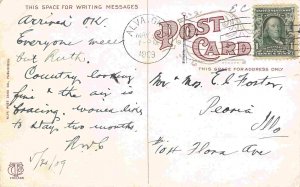 THIS SPACE FOR WRITING MESSAGES
Arrived OK.
Everyone well
but Ruth.
Country looking
fine & the air is
bracing. Would like
to stay two months.
POST
CARD
THIS SPACE FOR ADDRESS ONLY
ALVA
1909
Mr & Mrs. E. E. Foster,
Peoria
Flora Ave